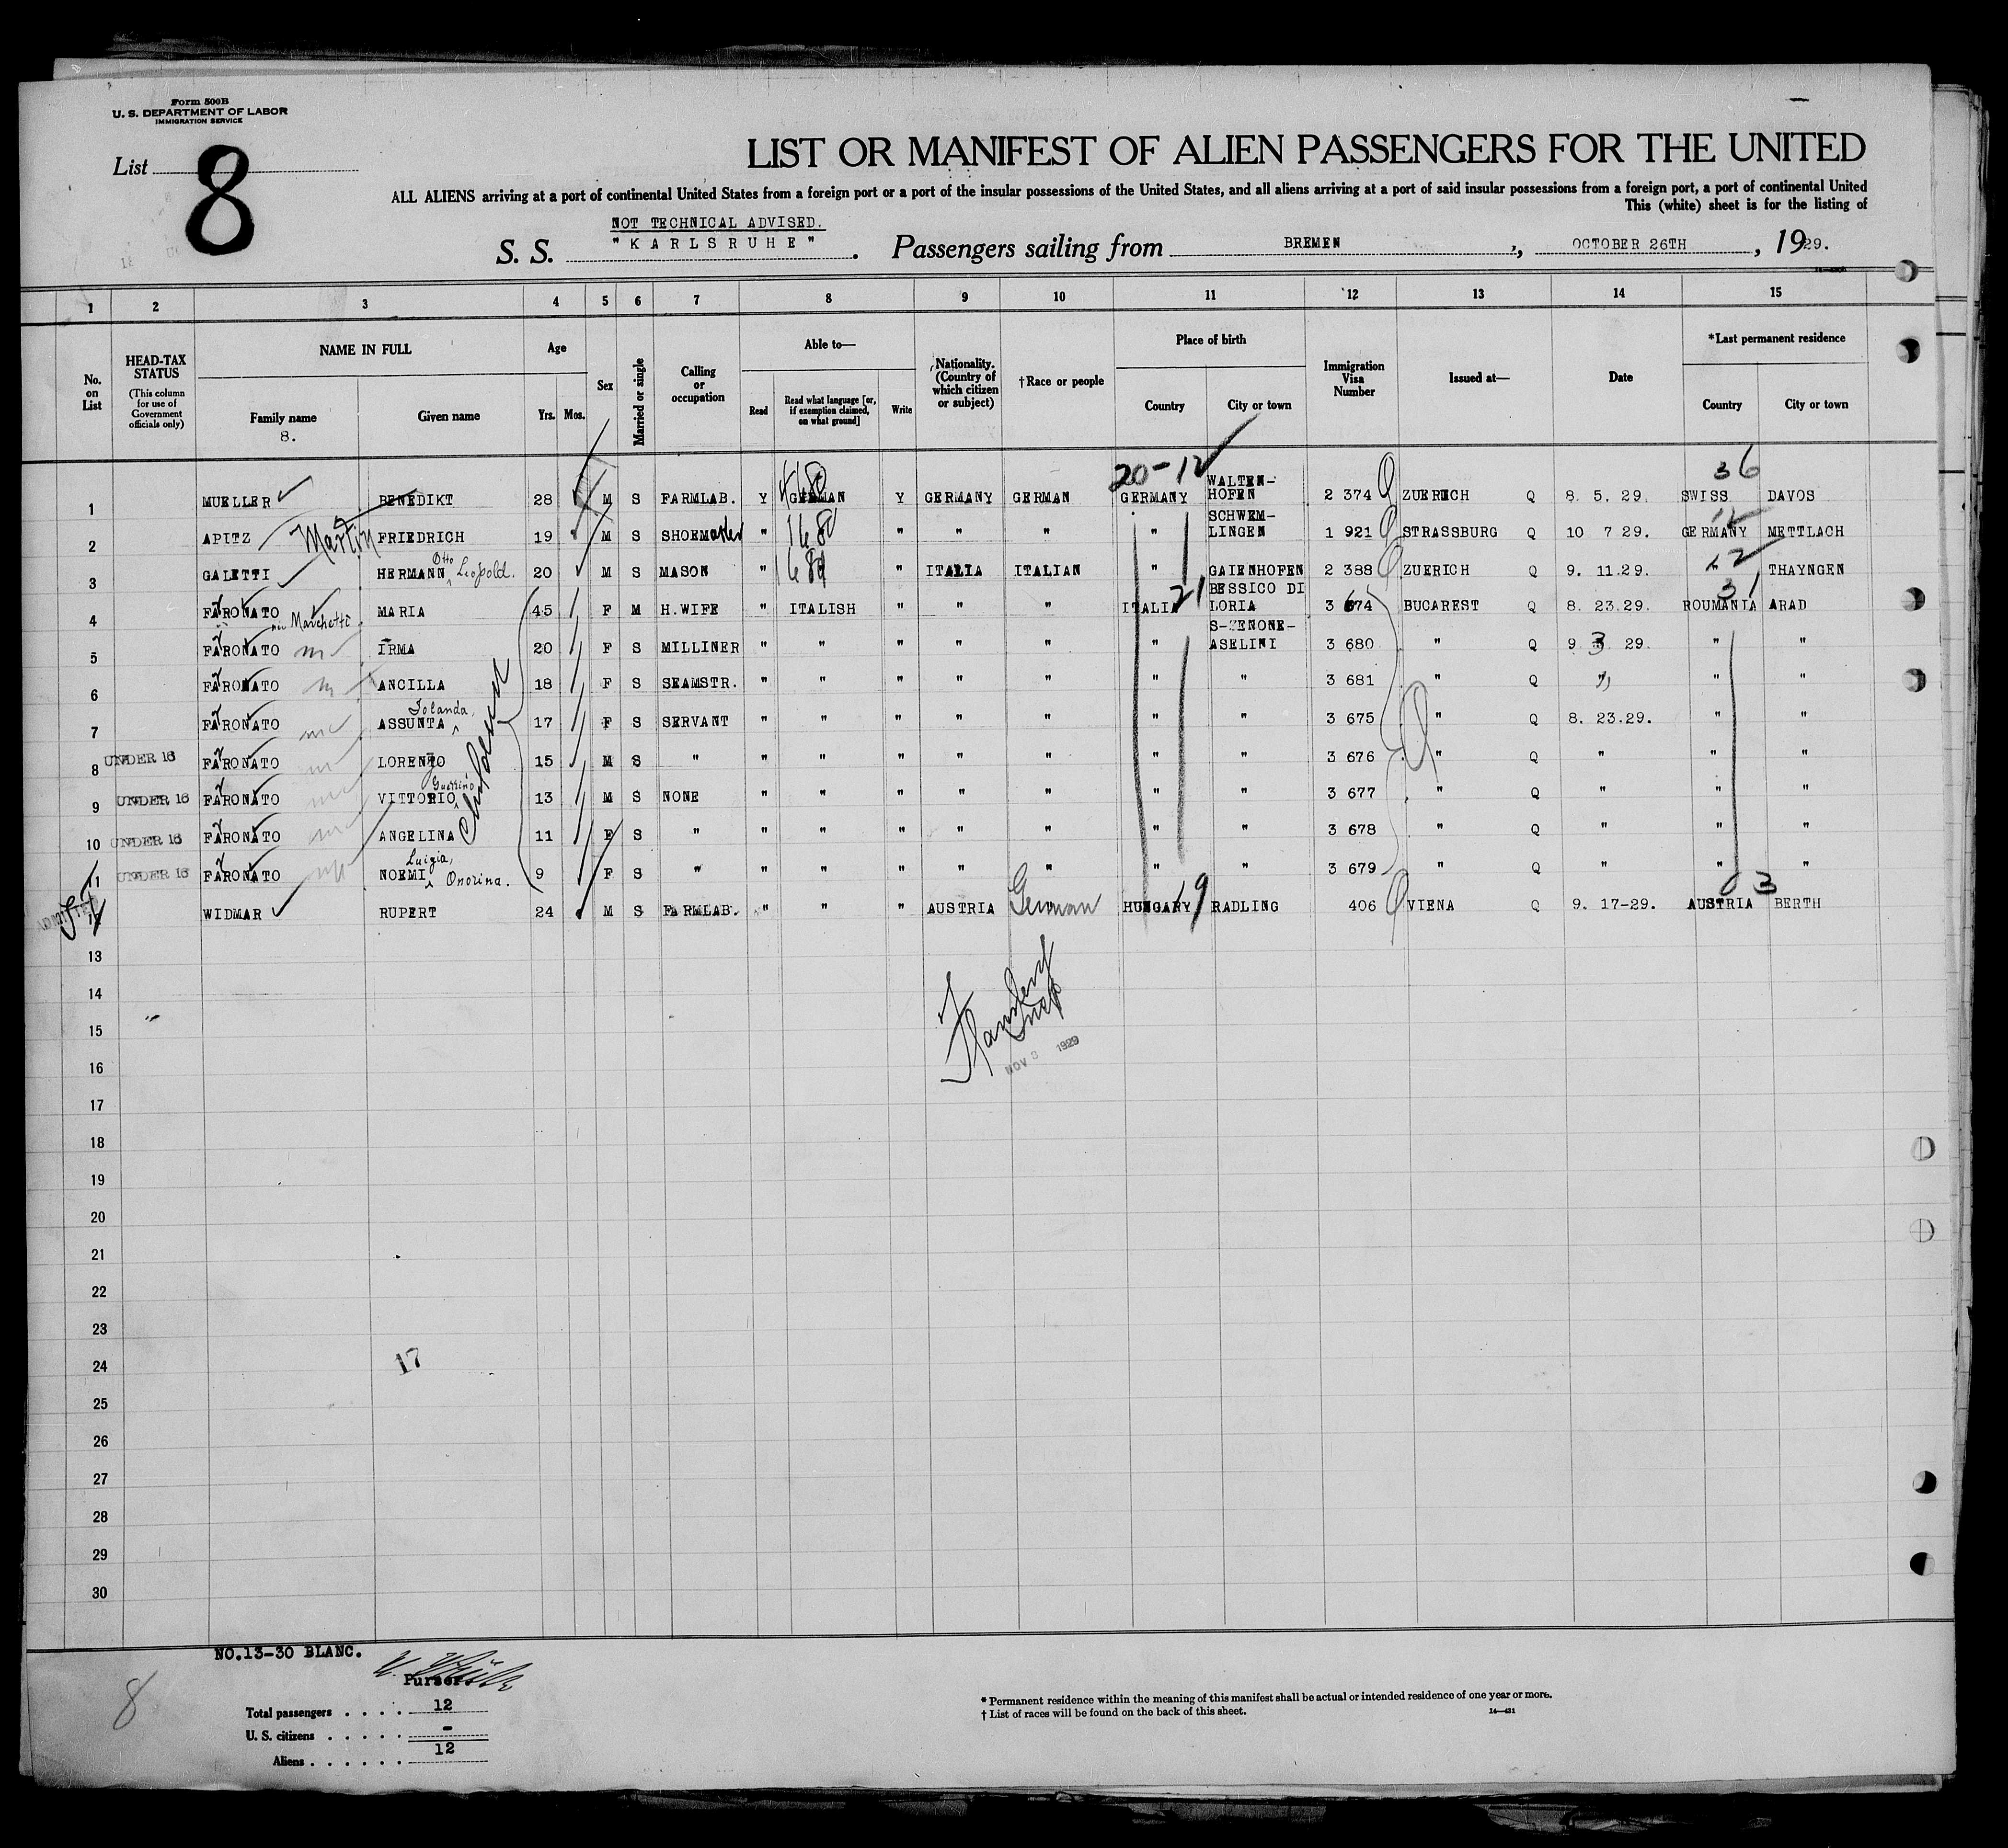 Form 500B
U. S. DEPARTMENT OF LABOR
IMMIGRATION SERVICE
List 8
LIST OR MANIFEST OF ALIEN PASSENGERS FOR THE UNITED
ALL ALIENS arriving at a port of continental United States from a foreign port or a port of the insular possessions of the United States, and all aliens arriving at a port of said insular possessions from a foreign port, a port of continental United
This (white) sheet is for the listing of
NOT TECHNICAL ADVISED.
S. S. "KARLSRUHE". Passengers sailing from BREMEN, OCTOBER 26TH, 1929.
1 2 3 4 5 6 7 8 9 10 11 12 13 14 15
No. on List
HEAD-TAX STATUS
(This column for use of Government officials only)
NAME IN FULL
Family name
8.
Given name
Age
Yrs. Mos.
Sex
Married or single
Calling or occupation
Able to—
Read
Read what language [or, if exemption claimed, on what ground]
Write
Nationality. (Country of which citizen or subject)
†Race or people
Place of birth
Country
City or town
Immigration Visa Number
Issued at—
Date
*Last permanent residence
Country
City or town
20-12 36
1 MUELLER BENEDIKT 28 M S FARMLAB. Y GERMAN Y GERMANY GERMAN GERMANY WALTEN-HOFEN 2 374 ZUERICH Q 8. 5. 29. SWISS DAVOS
2 APITZ Martin FRIEDRICH 19 M S SHOEMaker " 1680 " " " " SCHWEM-LINGEN 1 921 STRASSBURG Q 10 7 29. GERMANY METTLACH
3 GALETTI HERMANN Otto Leopold. 20 M S MASON " 168 " ITALIA ITALIAN " GAIENHOFEN 2 388 ZUERICH Q 9. 11.29. 12 THAYNGEN
4 FARONATO Marchetti MARIA 45 F M H.WIFE " ITALISH " " " ITALIA 21 BESSICO DI LORIA 3 674 BUCAREST Q 8. 23.29. 31 ROUMANIA ARAD
5 FARONATO m IRMA 20 F S MILLINER " " " " " " S-ZENONE-ASELINI 3 680 " Q 9 3 29. " "
6 FARONATO m ANCILLA 18 F S SEAMSTR. " " " " " " " 3 681 " Q " " "
7 FARONATO ASSUNTA Iolanda, 17 F S SERVANT " " " " " " " 3 675 " Q 8. 23.29. " "
UNDER 16 8 FARONATO LORENZO 15 M S " " " " " " " " 3 676 " Q " " "
9 UNDER 16 FARONATO VITTORIO Guerrino 13 M S NONE " " " " " " " 3 677 " Q " " "
10 UNDER 16 FARONATO ANGELINA 11 F S " " " " " " " " 3 678 " Q " " "
11 UNDER 16 FARONATO NOEMI Luigia, Onorina. 9 F S " " " " " " " " 3 679 " Q " " "
12 WIDMAR RUPERT 24 M S FARMLAB. " " " AUSTRIA German HUNGARY 19 RADLING 406 VIENA Q 9. 17-29. AUSTRIA 3 BERTH
13
14
15
NOV 8 1929
16
17
18
19
20
21
22
23
24 17
25
26
27
28
29
30
NO.13-30 BLANC.
8
Purser.
Total passengers . . . . 12
U. S. citizens . . . . . -
Aliens . . . . . . 12
* Permanent residence within the meaning of this manifest shall be actual or intended residence of one year or more.
† List of races will be found on the back of this sheet.
14—431